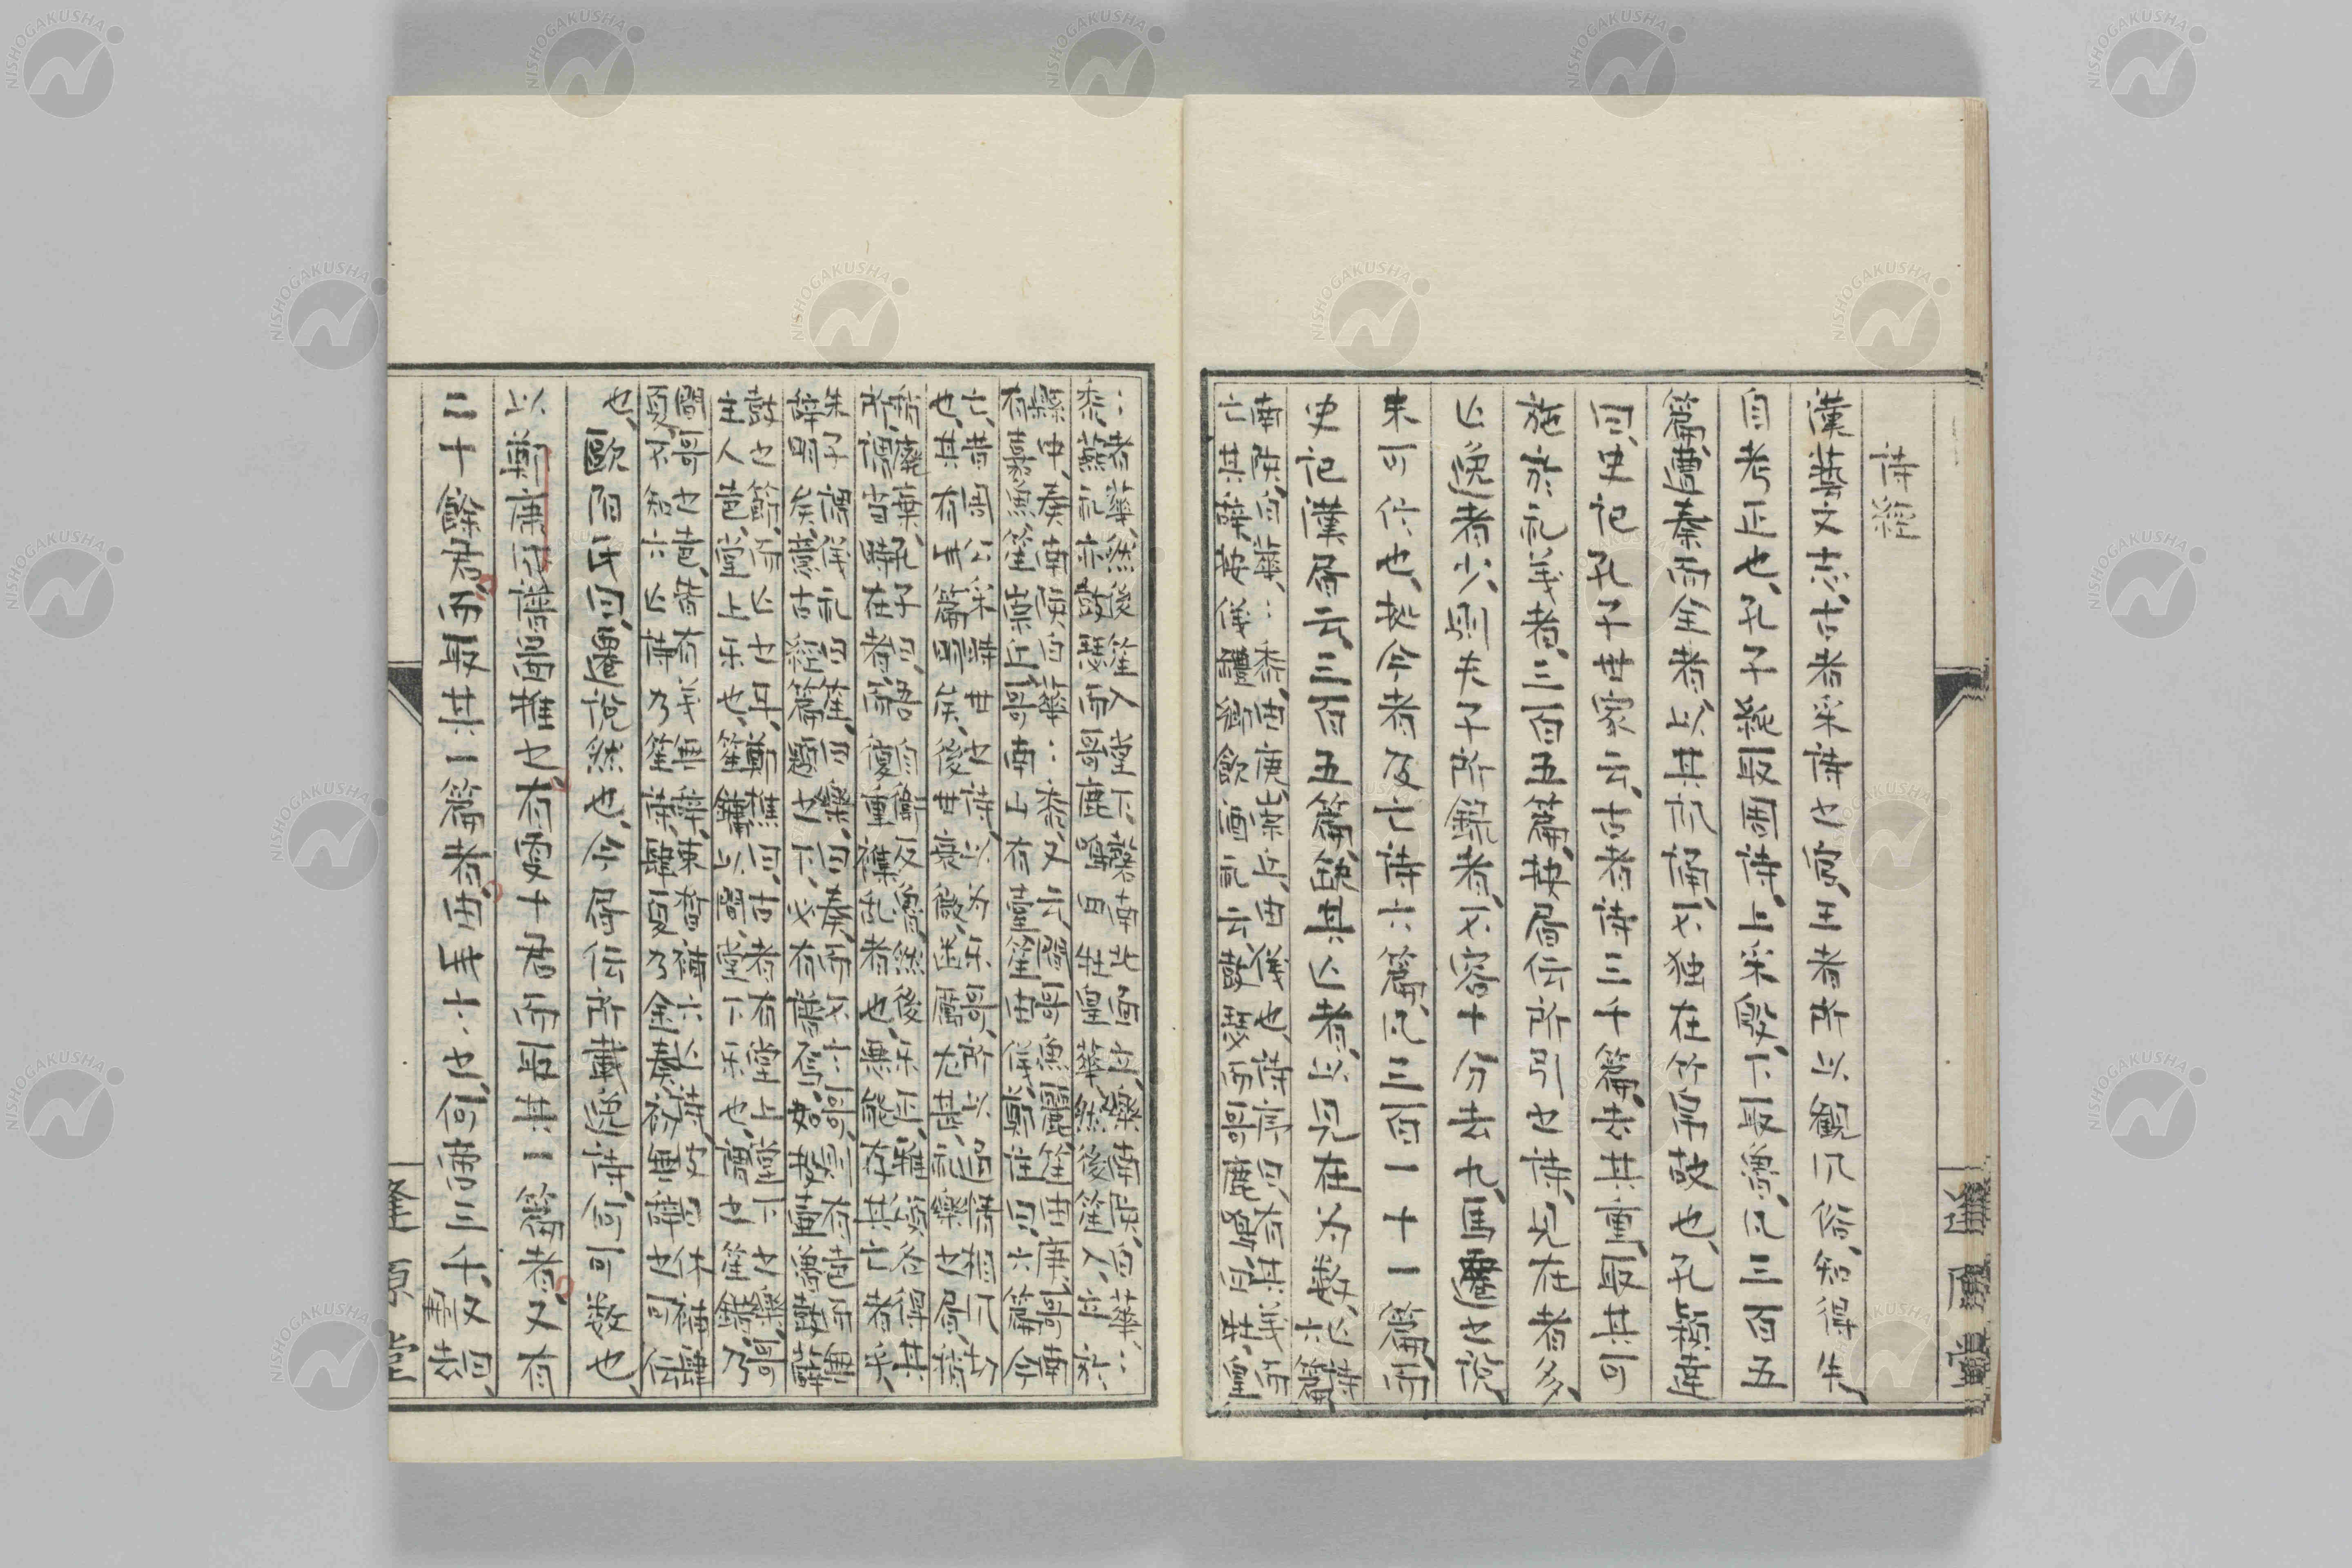 詩経
漢藝文志、古者采詩之官、王者所以観風俗、知得失、
自考正也、孔子純取周詩、上采殷、下取魯、凡三百五
篇、遭秦而全者、以其諷誦、不独在竹帛故也、孔穎達
曰、史記孔子世家云、古者詩三千篇、去其重、取其可
施於礼義者、三百五篇、按局伝所引之詩、見在者多、
亡逸者少、則夫子所録者、不容十分去九、馬遷之説、
未可信也、拠今者及亡詩六篇、凡三百一十一篇、而
史記漢局云、三百五篇、闕其亡者、以見在為数、亡詩六篇
南陔、白華、:黍、由庚、崇丘、由儀也、詩序曰、有其義而
亡其辞、按儀醴郷飲酒礼云、鼓瑟而哥鹿鳴、白牡、皇
:者華、然後笙入堂下、磬南北面立、樂南陔、白華、:
黍、燕礼亦鼓瑟而哥鹿鳴、四牡、皇華、然後笙入、立於
縣中、奏南陔、白華、:黍、又云、間哥魚麗、笙由庚、哥南
有嘉魚、笙崇丘、哥南山有臺、笙由儀、鄭注曰、六篇今
亡、昔周公采時世之詩、以為乐哥、所以通情相风切
也、其有此篇明矣、後世衰微、幽厲尤甚、礼樂之局、稍
稍廃棄、孔子曰、吾自衛反魯、然後乐正、雅頌各得其
所、謂当時在者、而復重襍乱者也、悪能存其亡者乎、
朱子謂儀礼曰笙、曰樂、曰奏、而不言哥、則有声而無
辞明矣、意古經篇題之下、必有譜焉、如投壷魯鼓薛
鼓之節、而亡之耳、鄭樵曰、古者有堂上堂下之樂、哥
主人声、堂上乐也、笙鏞以間、堂下乐也、謂之笙鏞、乃
間哥之声、皆有義無辞、束皙補六亡詩、皮日休補肆
夏、不知六亡詩乃笙詩、肆夏乃金奏、初無辞之可伝
也、歐陽氏曰、遷説然也、今局伝所載逸詩、何可数也、
以鄭康成譜圖推之、有更十君而取其一篇者、又有
二十餘君、而取其一篇者、由此言之、何啻三千、又劉喆、